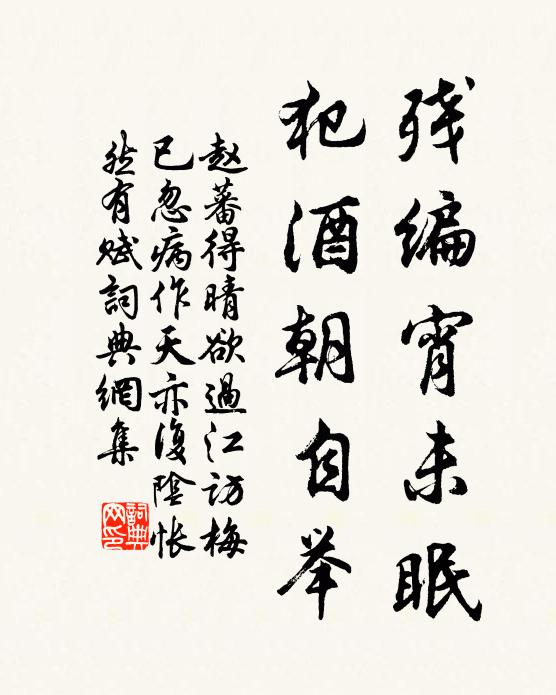 残编宵未眠
犯酒朝自举
赵蕃得晴欲過江访梅
已忽病作天亦復陰怅
然有赋詞典網集
詞典
网印